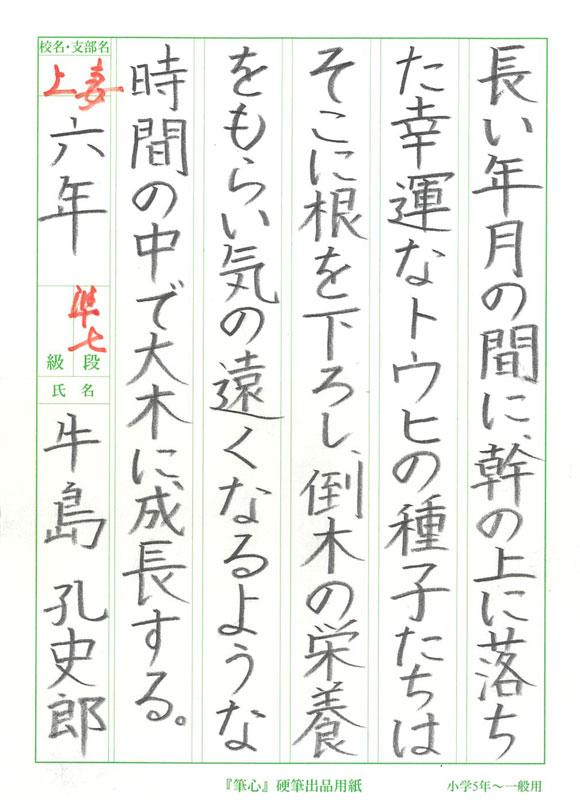 長い年月の間に、幹の上に落ち
た幸運なトウヒの種子たちは
そこに根を下ろし、倒木の栄養
をもらい気の遠くなるような
時間の中で大木に成長する。
校名・支部名
上妻
六年
準七
級段
氏名
牛島孔史郎
『筆心』硬筆出品用紙
小学5年〜一般用